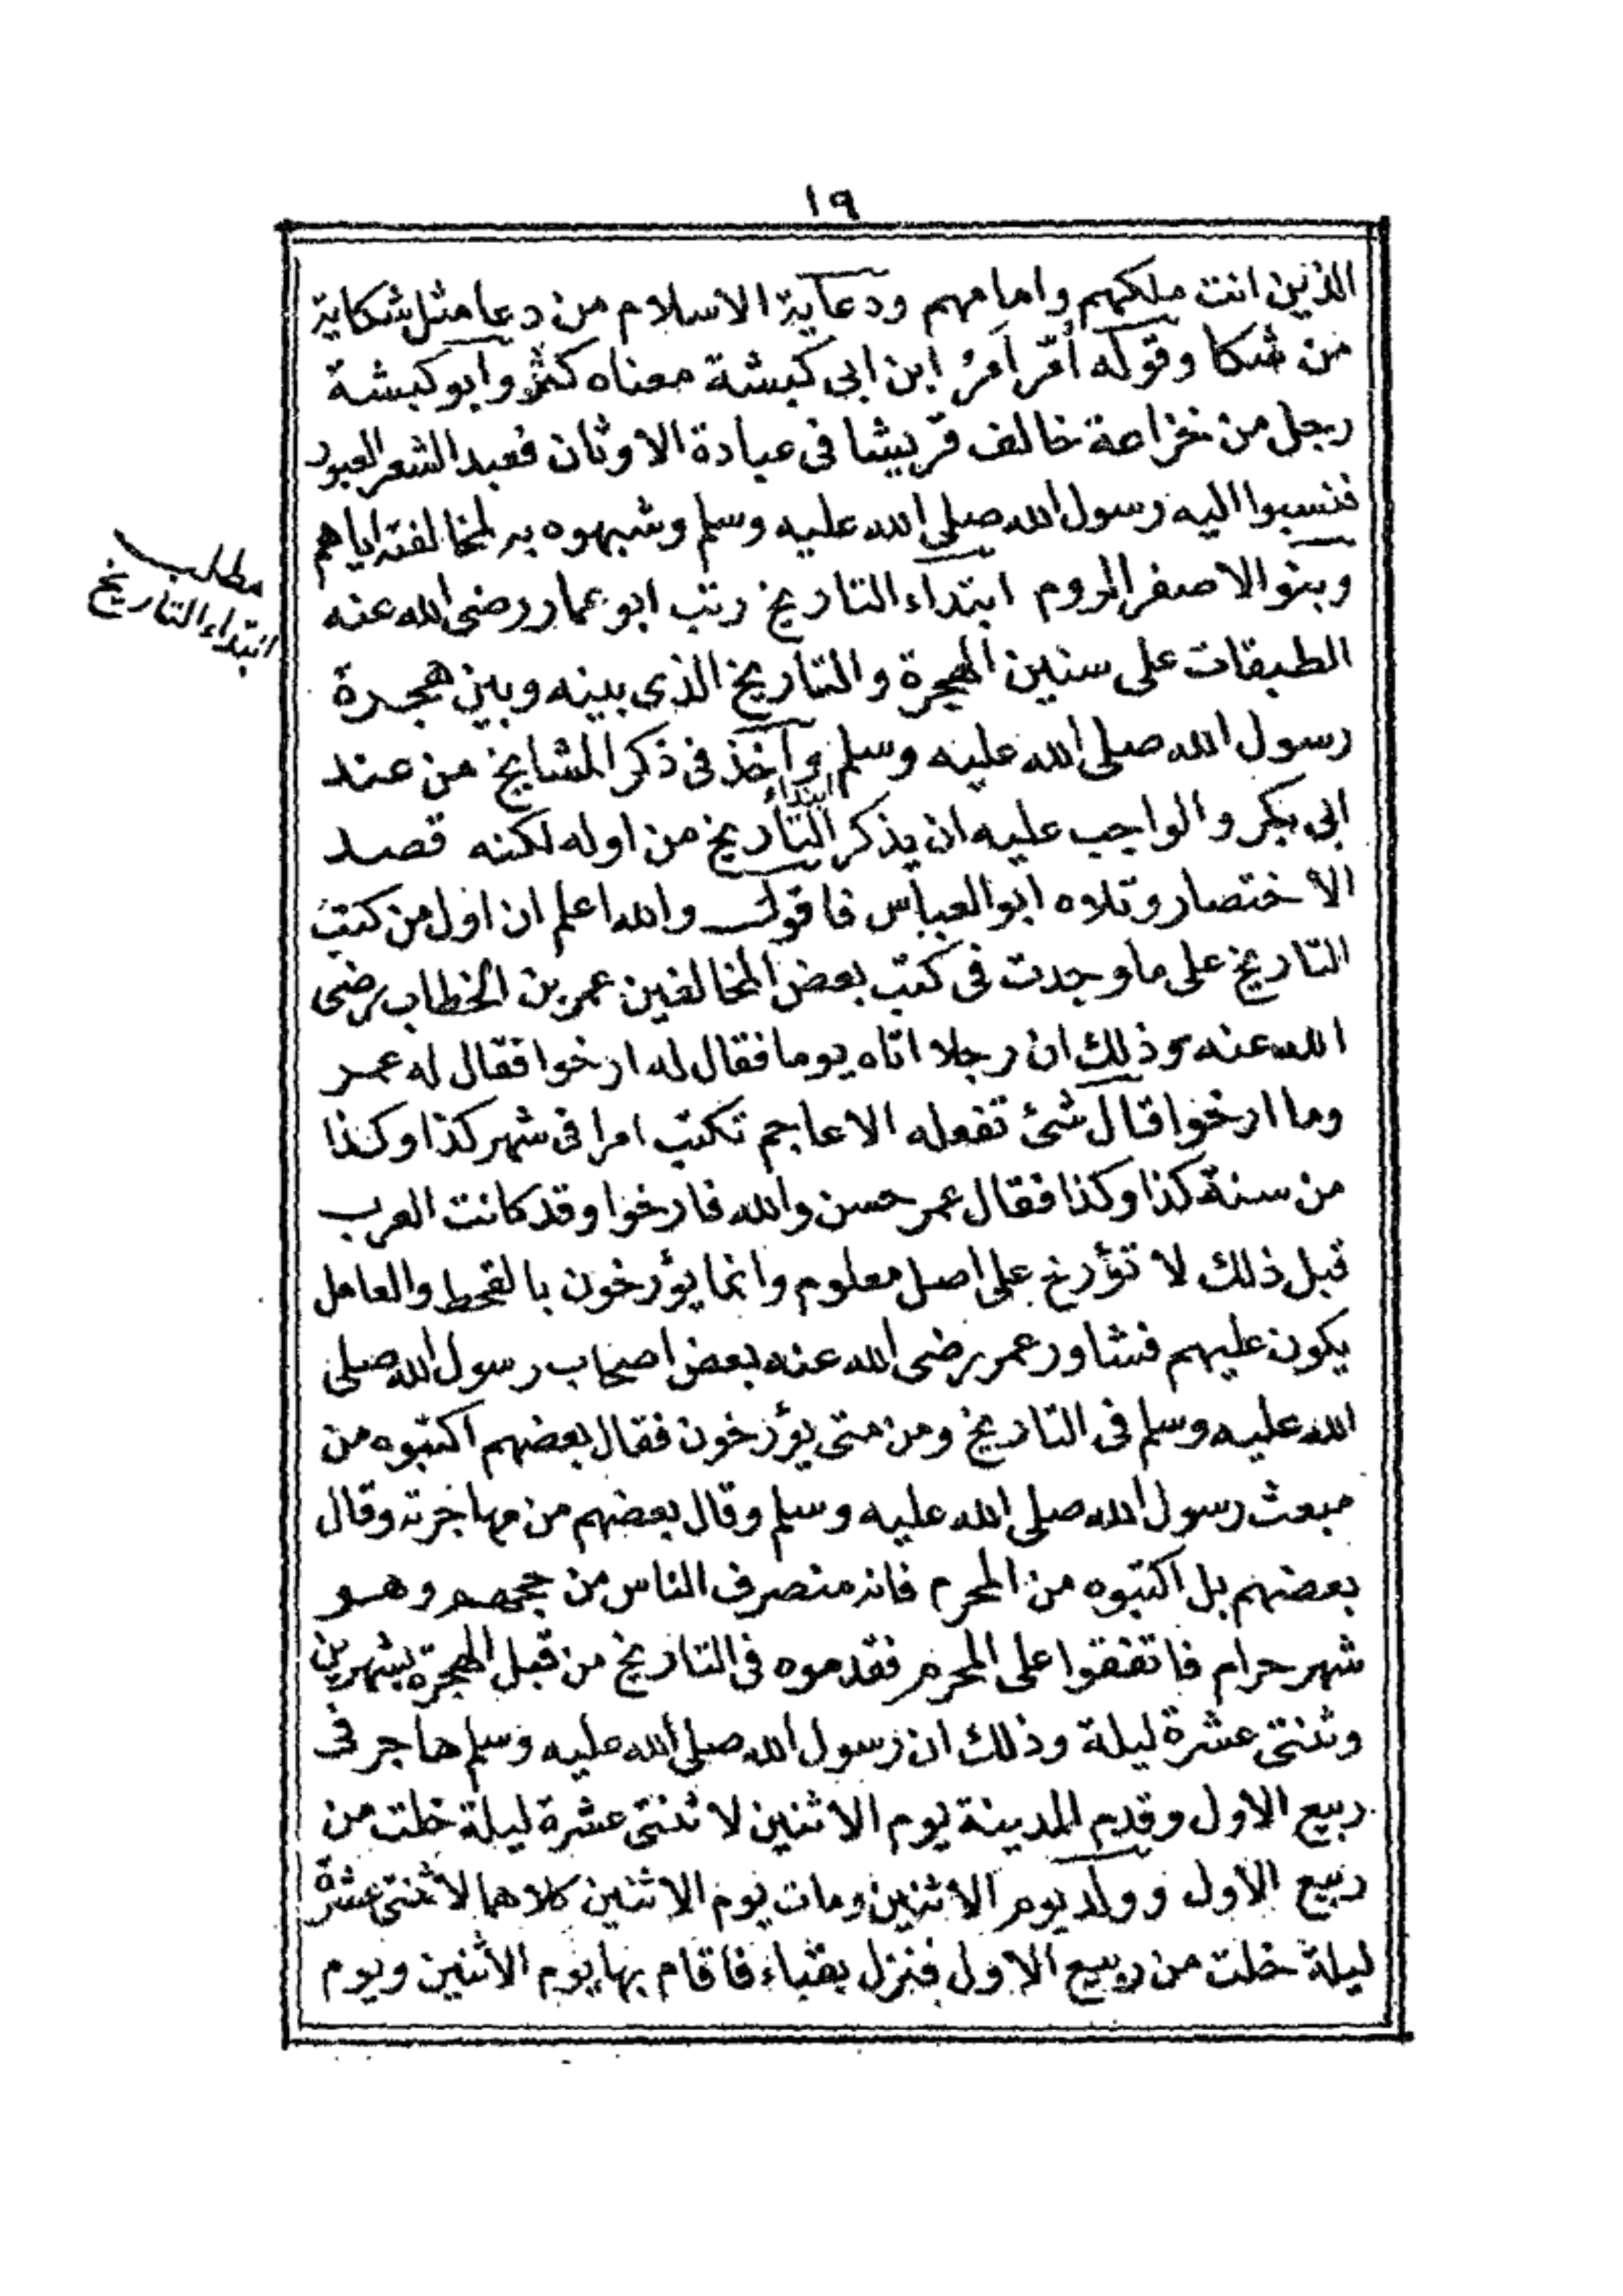 ١٩
الذين انت ملكهم وامامهم ودعاية الاسلام من دعا مثل شكاية
من شكا وقوله أمر أمرُ ابن ابى كبشة معناه كثر وابو كبشة
رجل من خزاعة خالف قريشا فى عبادة الاوثان فعبد الشعر العبور
فنسبوا اليه رسول الله صلى الله عليه وسلم وشبهوه به لمخالفته اياهم
وبنو الاصفر الروم ابتداء التاريخ رتب ابو عمار رضى الله عنه
مطلب
ابتداء التاريخ
الطبقات على سنين الهجرة والتاريخ الذى بينه وبين هجرة
رسول الله صلى الله عليه وسلم وآخذ فى ذكر المشايخ من عند
ابتداء
ابى بكر والواجب عليه ان يذكر التاريخ من اوله لكنه قصد
الاختصار وتلاه ابو العباس فاقول والله اعلم ان اول من كتب
التاريخ على ما وجدت فى كتب بعض المخالفين عمر بن الخطاب رضى
الله عنه وذلك ان رجلا اتاه يوما فقال له ارخوا فقال له عمر
وما ارخوا قال شئ تفعله الاعاجم تكتب امرا فى شهر كذا وكذا
من سنة كذا وكذا فقال عمر حسن والله فارخوا وقد كانت العرب
قبل ذلك لا تؤرخ على اصل معلوم وانما يؤرخون بالقحط والعامل
يكون عليهم فشاور عمر رضى الله عنه بعض اصحاب رسول الله صلى
الله عليه وسلم فى التاريخ ومن متى يؤرخون فقال بعضهم اكتبوه من
مبعث رسول الله صلى الله عليه وسلم وقال بعضهم من مهاجرته وقال
بعضهم بل اكتبوه من المحرم فانه منصرف الناس من حجهم وهو
شهر حرام فاتفقوا على المحرم فقدموه فى التاريخ من قبل الهجرة بشهرين
وثنتى عشرة ليلة وذلك ان رسول الله صلى الله عليه وسلم هاجر فى
ربيع الاول وقدم المدينة يوم الاثنين لاثنتى عشرة ليلة خلت من
ربيع الاول وولد يوم الاثنين ومات يوم الاثنين كلاهما لاثنتى عشرة
ليلة خلت من ربيع الاول فنزل بقباء فاقام بها يوم الاثنين ويوم